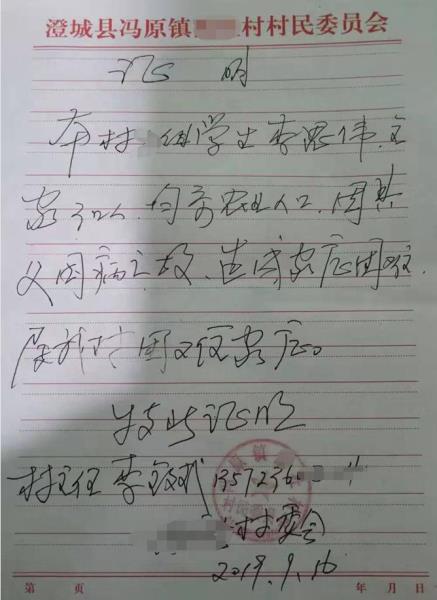 澄城县冯原镇 村村民委员会
证明
本村 组学生李 伟,全
家3口人,均为农业人口,因其
父因病亡故、造成家庭困难,
属我村困难家庭。
特此证明
村主任 李 13572360
村委会
2019.9.16
第 页 年 月 日